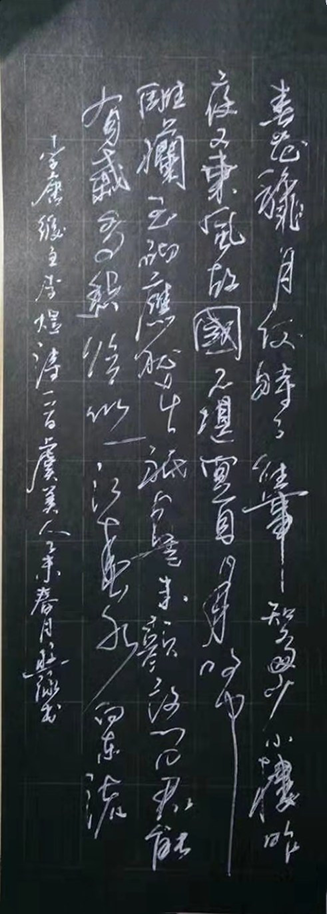 春花龝月何時了往事知多少小樓昨
夜又東風故國不堪回首月明中
雕欄玉砌應猶在祇是朱顏改問君能
有幾多愁恰似一江春水向東流
唐後主李煜詩一首虞美人未春月